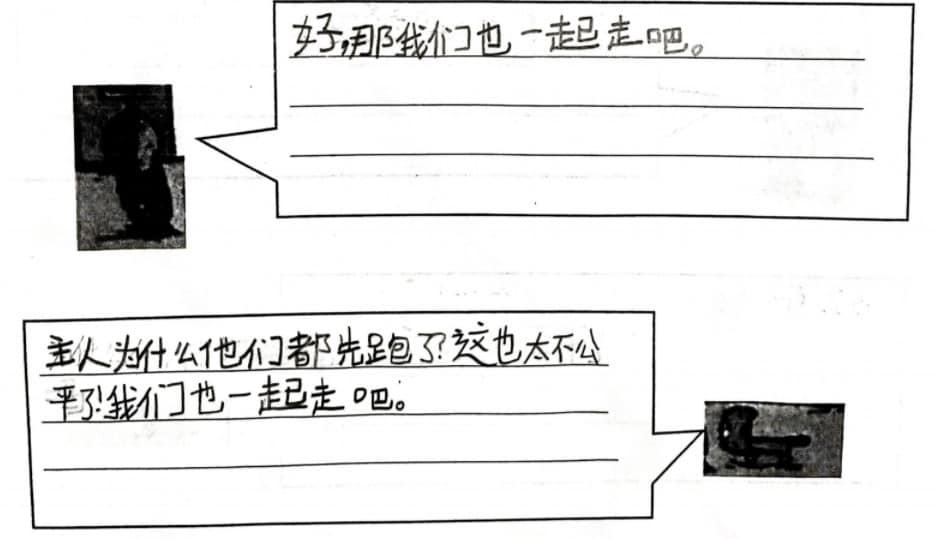 好,那我们也一起走吧。
主人为什么他们都先跑了?这也太不公
平了!我们也一起走吧。